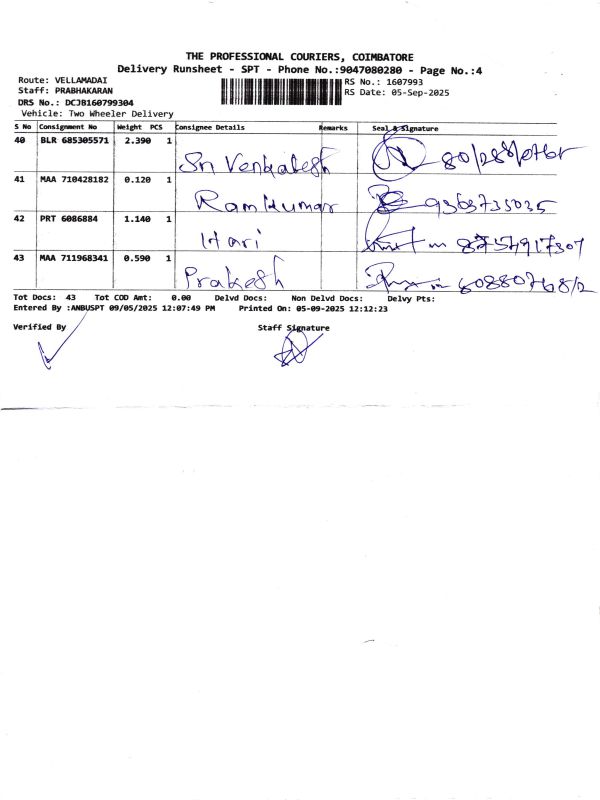 THE PROFESSIONAL COURIERS, COIMBATORE
Delivery Runsheet - SPT - Phone No.:9047080280 - Page No.:4
Route: VELLAMADAI RS No.: 1607993
Staff: PRABHAKARAN RS Date: 05-Sep-2025
DRS No.: DCJB160799304
Vehicle: Two Wheeler Delivery
S No Consignment No Weight PCS Consignee Details Remarks Seal & Signature
40 BLR 685305571 2.390 1
Sri Venkatesh
41 MAA 710428182 0.120 1
Ramkumar 9363733035
42 PRT 6086884 1.140 1
Hari
43 MAA 711968341 0.590 1
Prakesh
Tot Docs: 43 Tot COD Amt: 0.00 Delvd Docs: Non Delvd Docs: Delvy Pts:
Entered By :ANBUSPT 09/05/2025 12:07:49 PM Printed On: 05-09-2025 12:12:23
Verified By Staff Signature